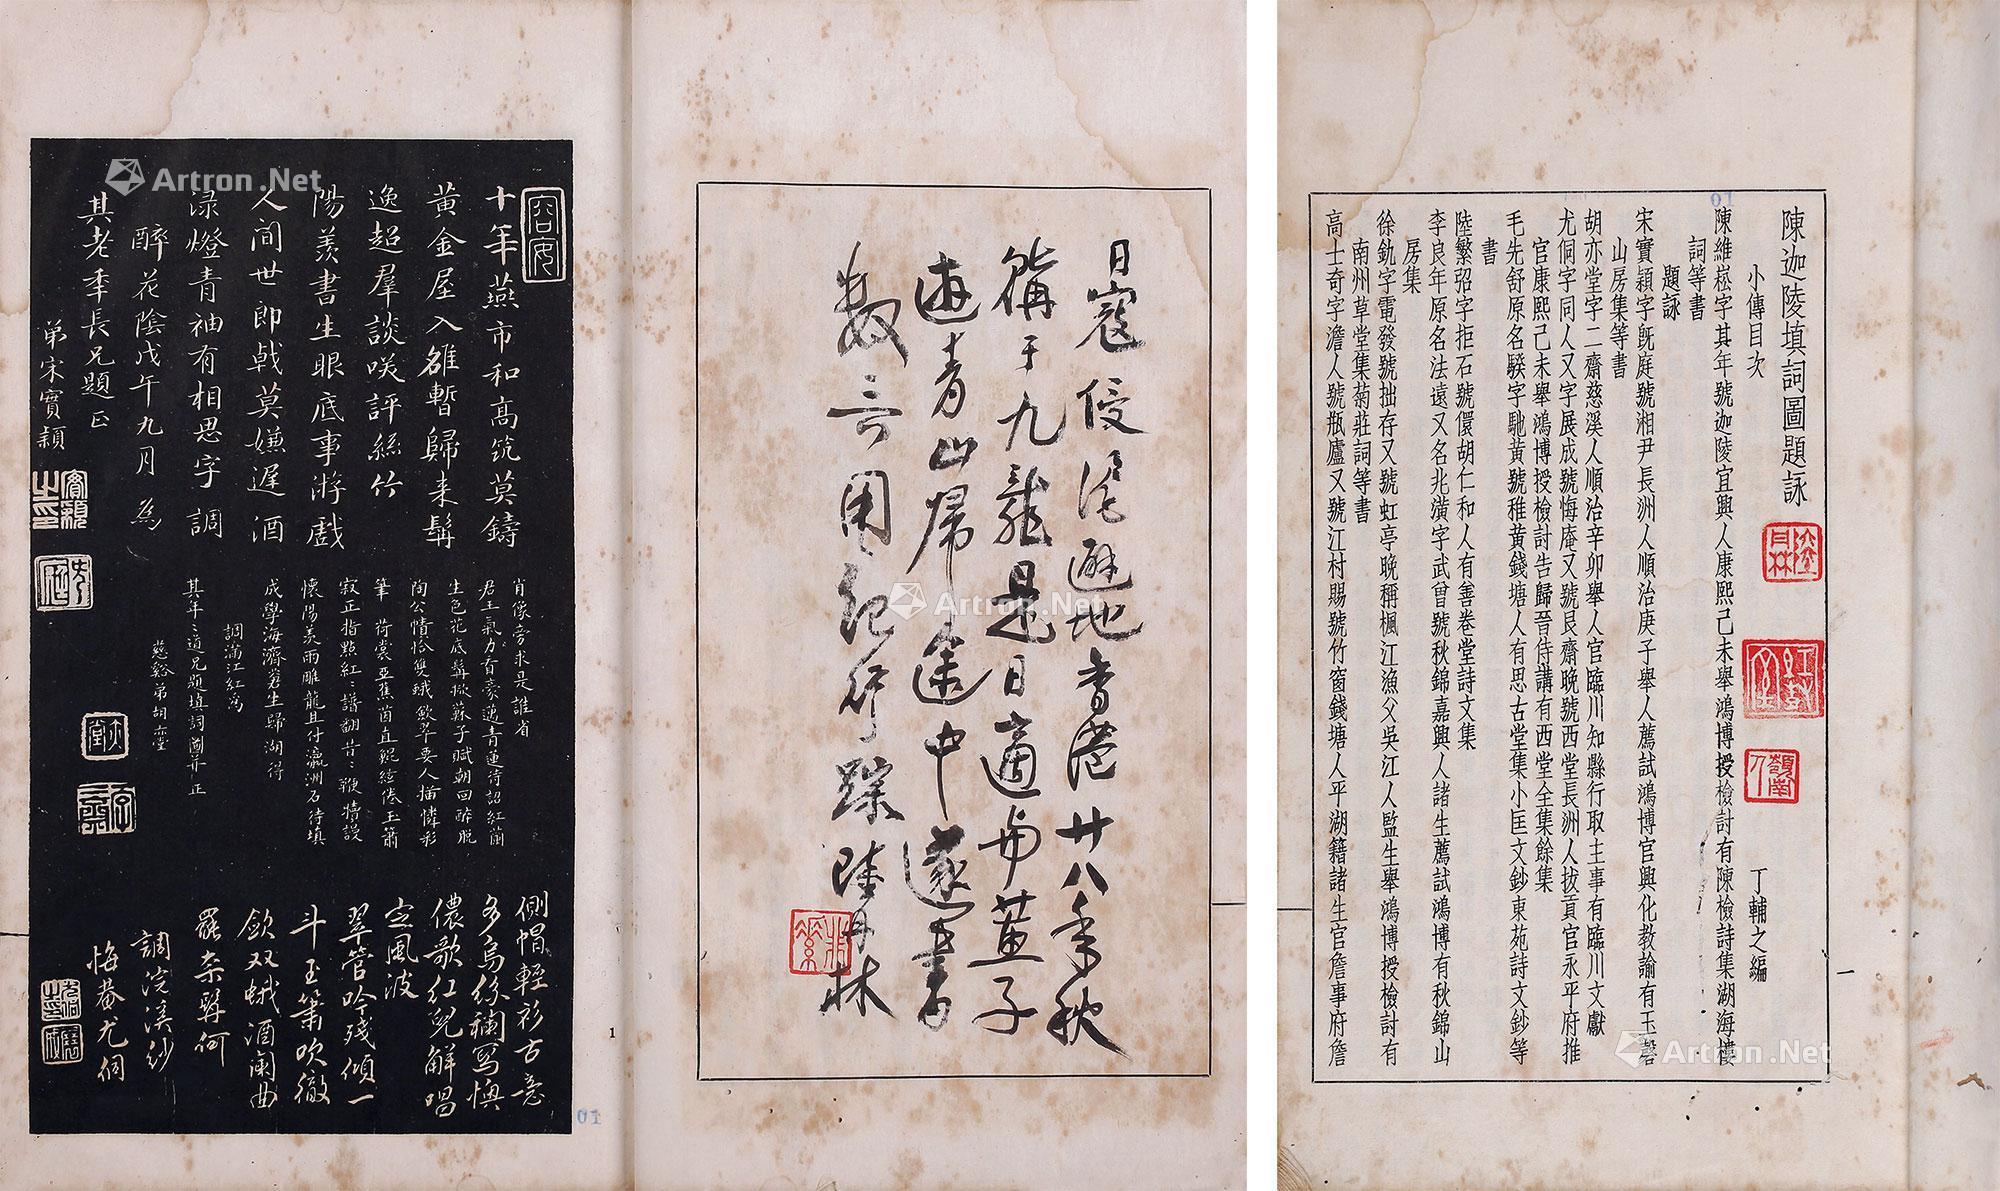 陳迦陵填詞圖題詠
小傳目次
丁輔之編
陳維崧字其年號迦陵宜興人康熙己未舉鴻博授檢討有陳檢詩集湖海樓
詞等書
題詠
宋實穎字旣庭號湘尹長洲人順治庚子舉人薦試鴻博官興化教諭有玉磬
山房集等書
胡亦堂字二齋慈溪人順治辛卯舉人官臨川知縣行取主事有臨川文獻
尤侗字同人又字展成號悔庵又號艮齋晚號西堂長洲人拔貢官永平府推
官康熙己未舉鴻博授檢討告歸晉侍講有西堂全集餘集
毛先舒原名騤字馳黃號稚黃錢塘人有思古堂集小匡文鈔東苑詩文鈔等
書
陸繁弨字拒石號儇胡仁和人有善卷堂詩文集
李良年原名法遠又名兆潢字武曾號秋錦嘉興人諸生薦試鴻博有秋錦山
房集
徐釚字電發號拙存又號虹亭晚稱楓江漁父吳江人監生舉鴻博授檢討有
南州草堂集菊莊詞等書
高士奇字澹人號瓶廬又號江村賜號竹窗錢塘人平湖籍諸生官詹事府詹
一
日寇侵滬避地香港廿八年秋
儔于九龍是日適與黃子
遊青山歸途中遂書
數言用紀行踪陸丹林
容安
十年燕市和高筑莫鑄
黃金屋入雒暫歸来髯
逸超羣談咲評絲竹
陽羨書生眼底事游戲
人間世即戟莫嫌遲酒
渌燈青袖有相思字調
醉花陰戊午九月為
其老季長兄題正
弟宋實穎
肖像旁求是誰省
君王氣力育豪邁青蓮待詔紅蘭
生色花底髯掀蘇子賦朝回醉脫
陶公幘恰雙蛾歛翠要人描憐彩
筆 荷裳亞蕉茵直鯤絃倦玉簫
寂正指點紅譜翻昔昔鞭犢謾
懷陽羨雨雕龍且付瀛洲石待填
成學海濟蒼生歸湖得
調滿江紅為
其年道兄題填詞圖并正
慈谿弟胡亦堂
側帽輕衫古意
多烏絲襴寫懊
儂歌紅兒解唱
定風波
翠管吟殘傾一
斗玉簫吹徹
飲双蛾酒闌曲
罷奈髯何
調浣溪紗
悔菴尤侗
1
10
Artron.Net
Artron.Net
Artron.Net